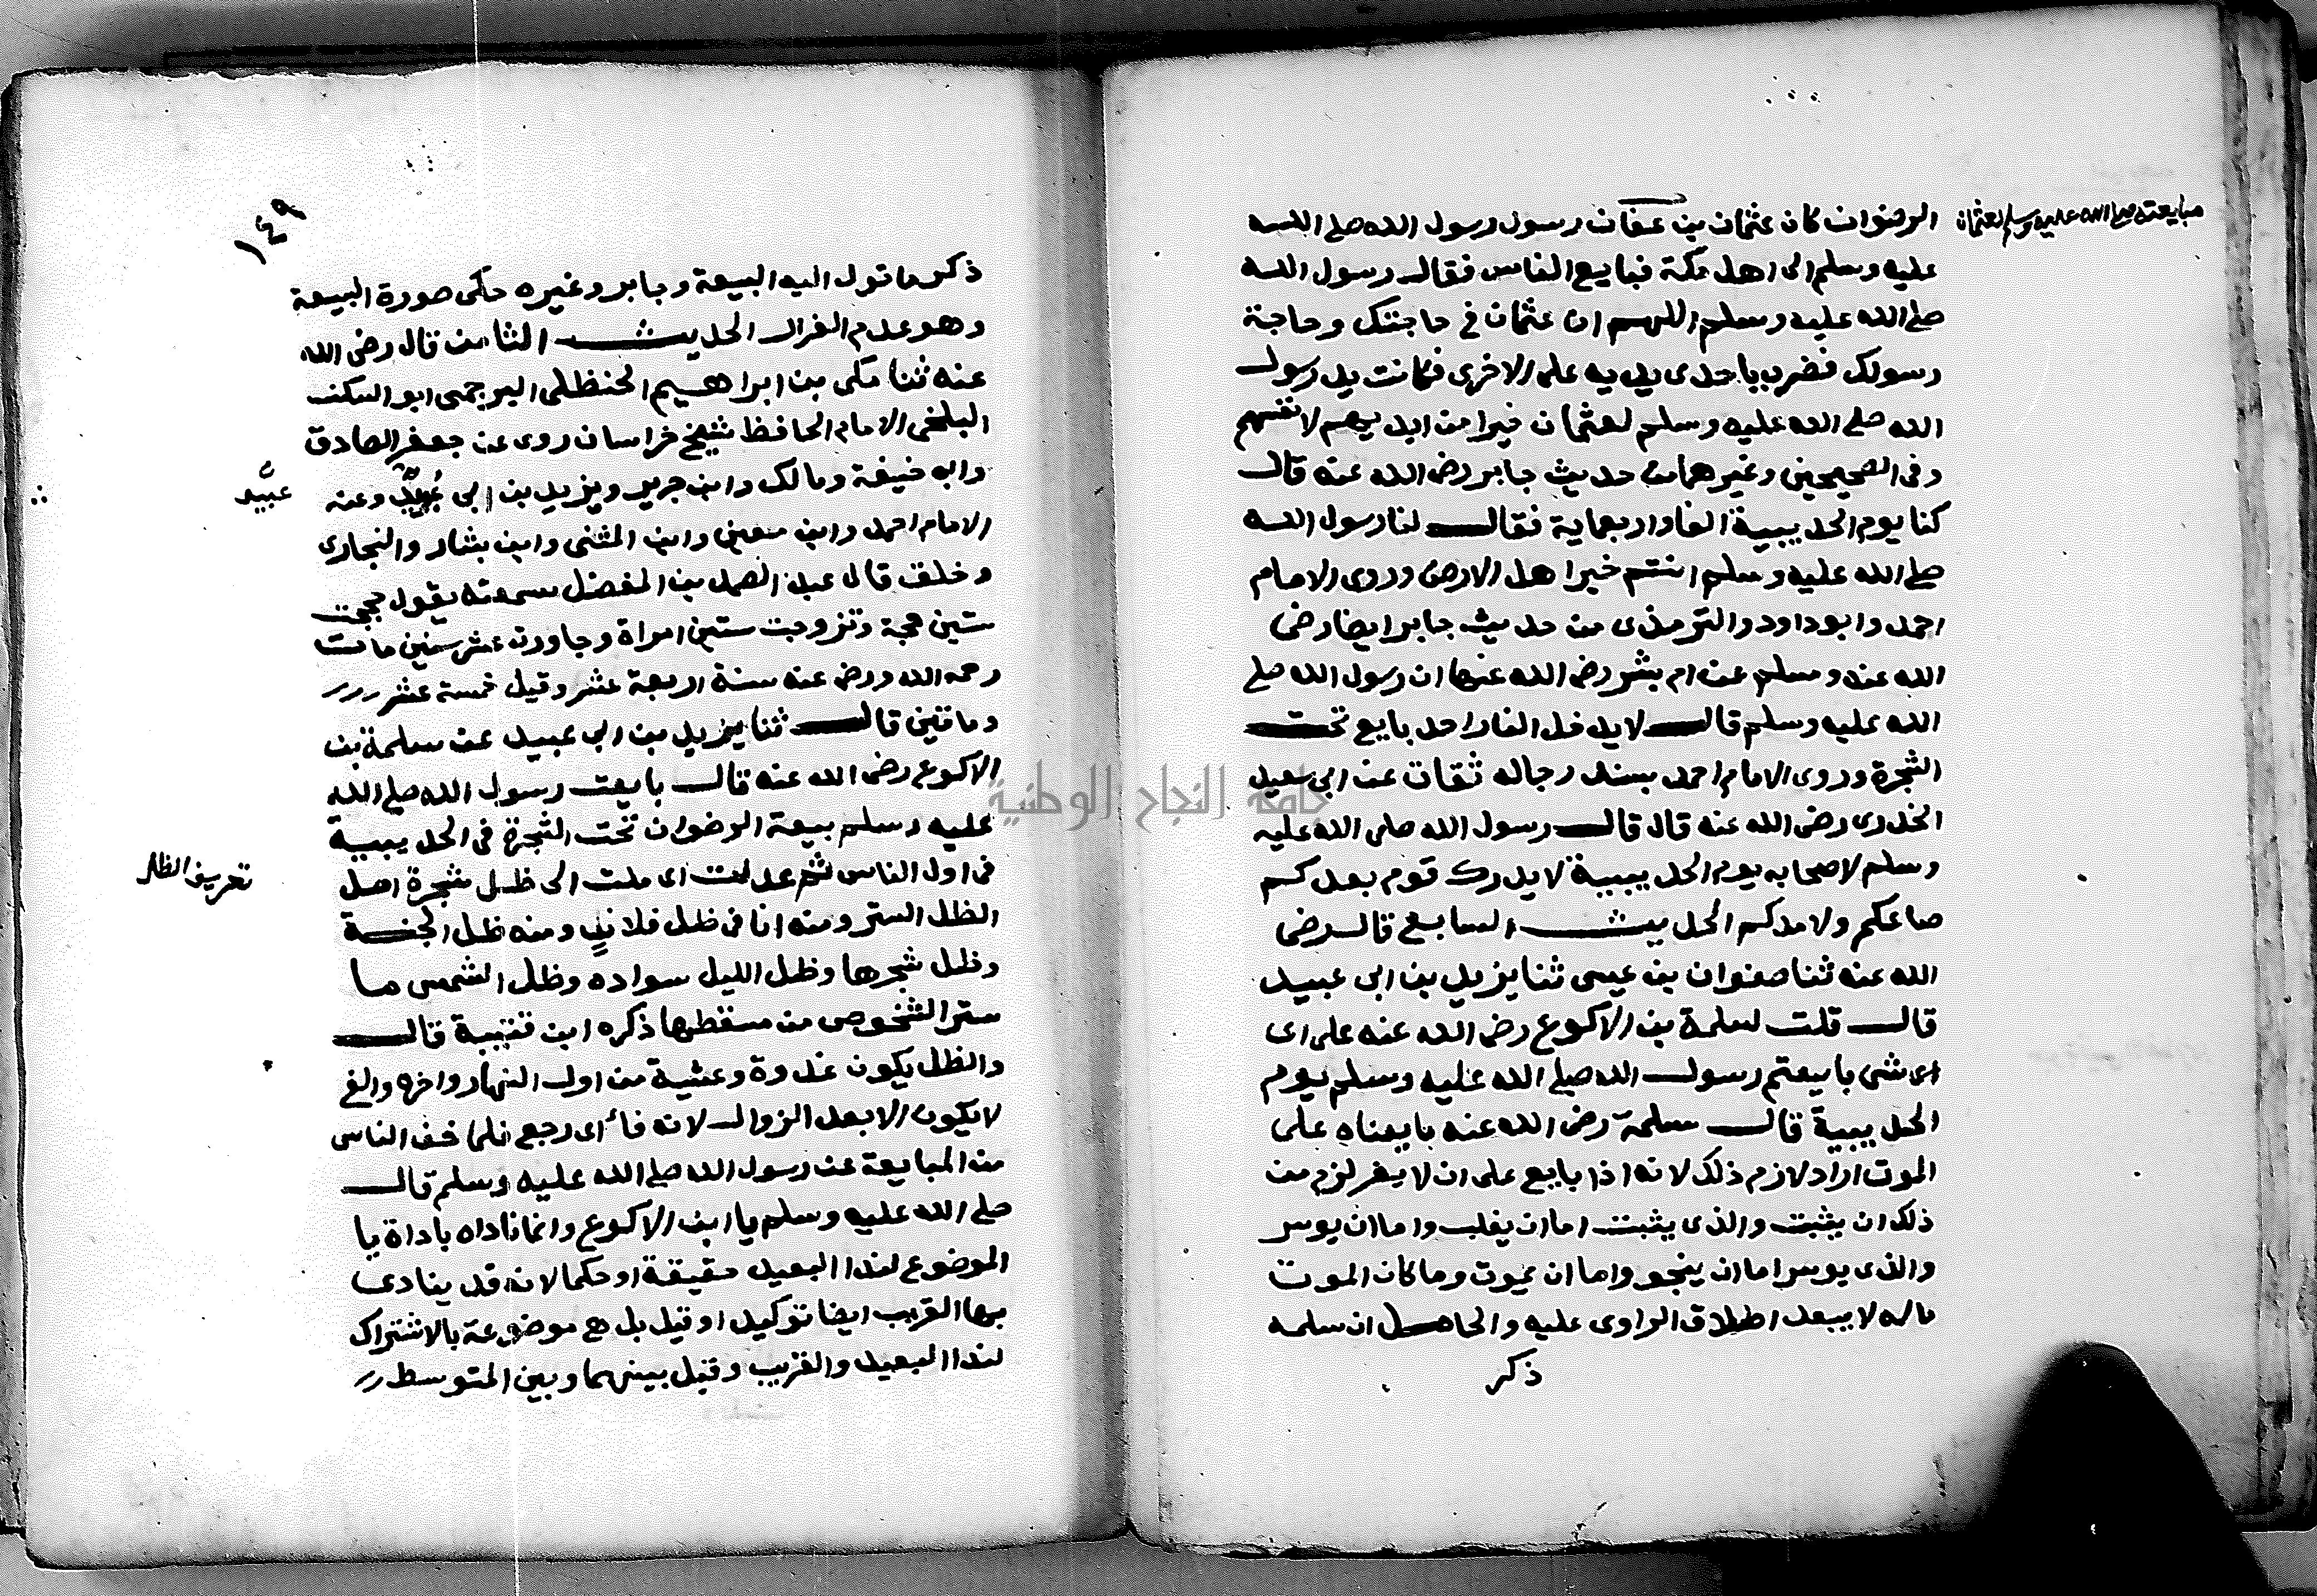 مبايعته صلى الله عليه وسلم لعثمان
الرضوان كان عثمان بن عفان رسول رسول الله صلى الله
عليه وسلم الى اهل مكة فبايع الناس فقال رسول الله
صلى الله عليه وسلم اللهم ان عثمان في حاجتك وحاجة
رسولك فضرب باحدى يديه على الاخرى فكانت يد رسول
الله صلى الله عليه وسلم لعثمان خيرا من ايديهم لانفسهم
وفي الصحيحين وغيرهما من حديث جابر رضى الله عنه قال
كنا يوم الحديبية الفا واربعماية فقال لنا رسول الله
صلى الله عليه وسلم انتم خير اهل الارض وروى الامام
احمد وابو داود والترمذى من حديث جابر ايضا رضى
الله عنه ومسلم عن ام بشر رضى الله عنها ان رسول الله صلى
الله عليه وسلم قال لا يدخل النار احد بايع تحت
الشجرة وروى الامام احمد بسند رجاله ثقات عن ابي سعيد
الخدرى رضى الله عنه قال قال رسول الله صلى الله عليه
وسلم لاصحابه يوم الحديبية لا يدرك قوم بعدكم
صاعكم ولا مدكم الحديث السابع قال رضى
الله عنه ثنا صفوان بن عيسى ثنا يزيد بن ابى عبيد
قال قلت لسلمة بن الاكوع رضى الله عنه على اى
اى شى بايعتم رسول الله صلى الله عليه وسلم يوم
الحديبية قال سلمة رضى الله عنه بايعناه على
الموت اراد لازم ذلك لانه اذا بايع على ان لا يفر لزم من
ذلك ان يثبت والذى يثبت اما ان يغلب واما ان يوسر
والذى يوسر اما ان ينجو واما ان يموت وما كان الموت
ماله لا يبعد اطلاق الراوى عليه والحاصل ان سلمه
ذكر
١٤٩
ذكر ما تول اليه البيعة وجابر وغيره حكى صورة البيعة
وهو عدم الفرار الحديث الثامن قال رضى الله
عنه ثنا مكى بن ابراهيم الحنظلى البرجمى ابو السكن
البلخى الامام الحافظ شيخ خراسان روى عن جعفر الصادق
وابه حنيفة ومالك وابن جرير ويزيد بن ابى عبيد وعنه
عبيد
الامام احمد وابن معين وابن المثنى وابن بشار والبخارى
وخلق قال عبد الصمد بن المفضل سمعته يقول حججت
ستين حجة وتزوجت ستين امراة وجاورت عشر سنين مات
رحمه الله ورضى عنه سنة اربعة عشر وقيل خمسة عشر
وماتين قال ثنا يزيد بن ابى عبيد عن سلمة بن
الاكوع رضى الله عنه قال بايعت رسول الله صلى الله
عليه وسلم بيعة الرضوان تحت الشجرة في الحديبية
فى اول الناس ثم عدلت اى ملت الى ظل شجرة اصل
تعريف الظل
الظل الستر ومنه انا فى ظل فلان ومنه ظل الجنة
وظل شجرها وظل الليل سواده وظل الشمس ما
ستر الشخوص من مسقطها ذكره ابن قتيبة قال
والظل يكون غدوة وعشية من اول النهار واخره والفى
لا يكون الا بعد الزوال لانه فاء اى رجع فلما خف الناس
من المبايعة عن رسول الله صلى الله عليه وسلم قال
صلى الله عليه وسلم يا ابن الاكوع وانما ناداه باداة يا
الموضوع لندا البعيد حقيقة او حكما لانه قد ينادى
بها القريب ايضا توكيدا وقيل بل هى موضوعة بالاشتراك
لندا البعيد والقريب وقيل بينهما وبين المتوسط
جامعة النجاح الوطنية